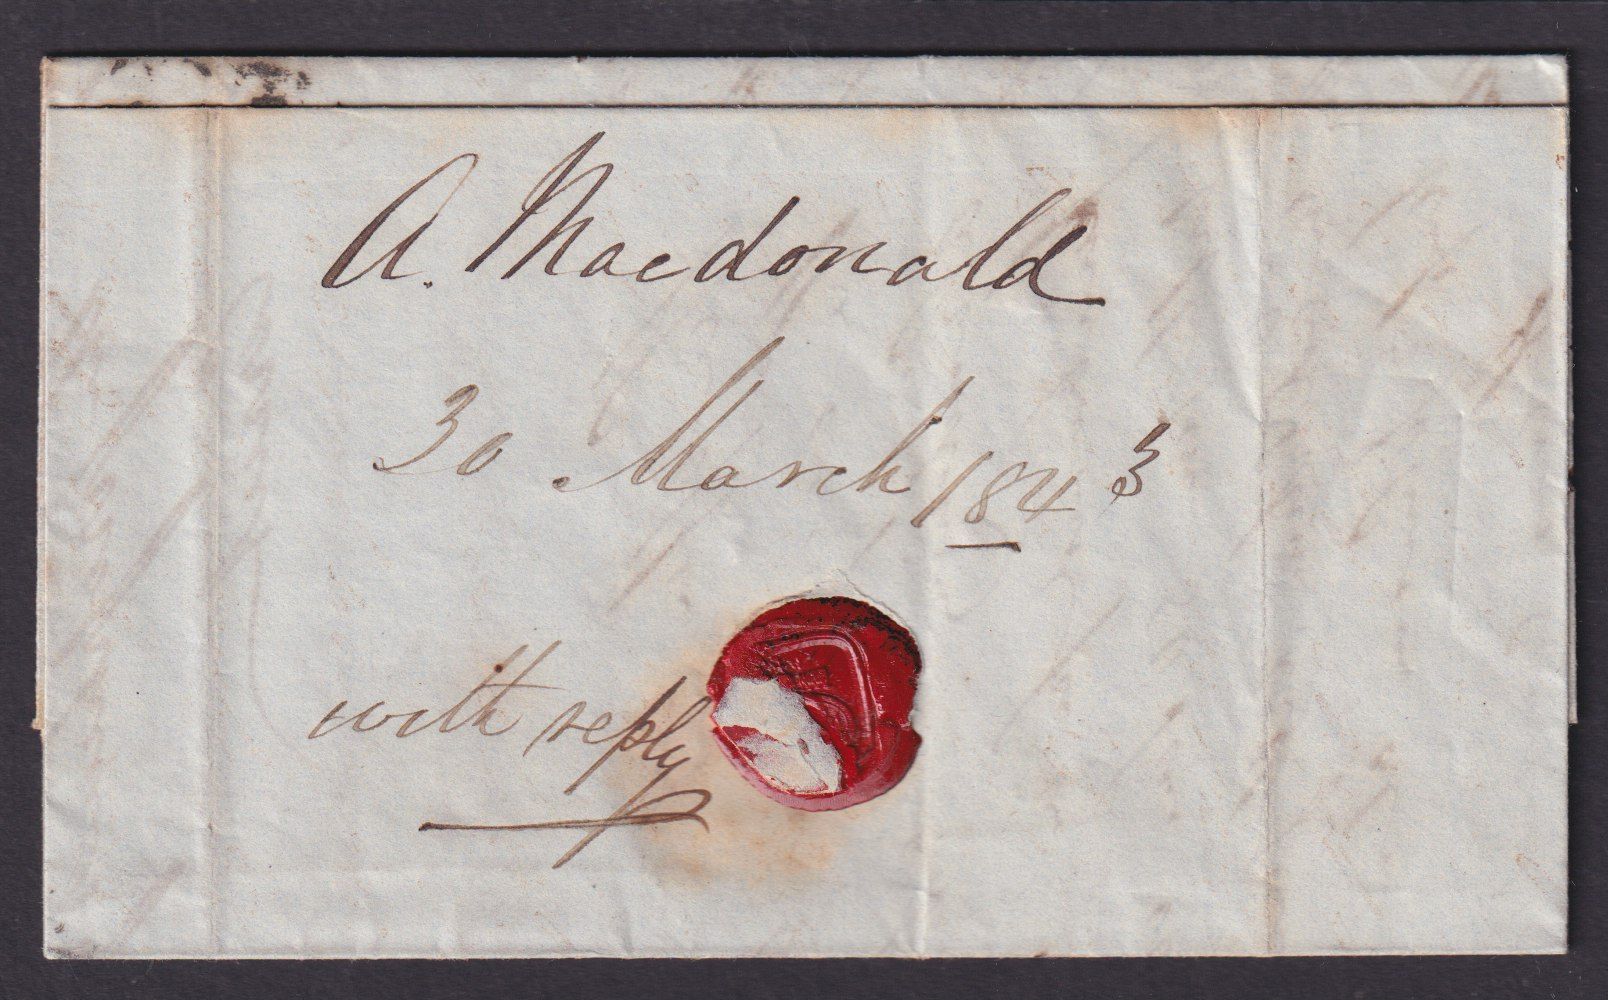 A. Macdonald
30 March 1843
with reply